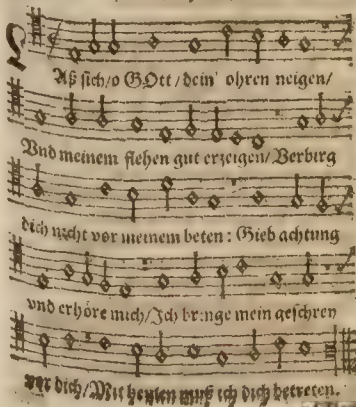 Aß sich/o GOtt/dein' ohren neigen/
Vnd meinem flehen gut erzeigen/Verbirg
dich nicht vor meinem beten: Gieb achtung
vnd erhöre mich/Jch bringe mein geschrey
vor dich/Mit heulen muß ich dich betreten.